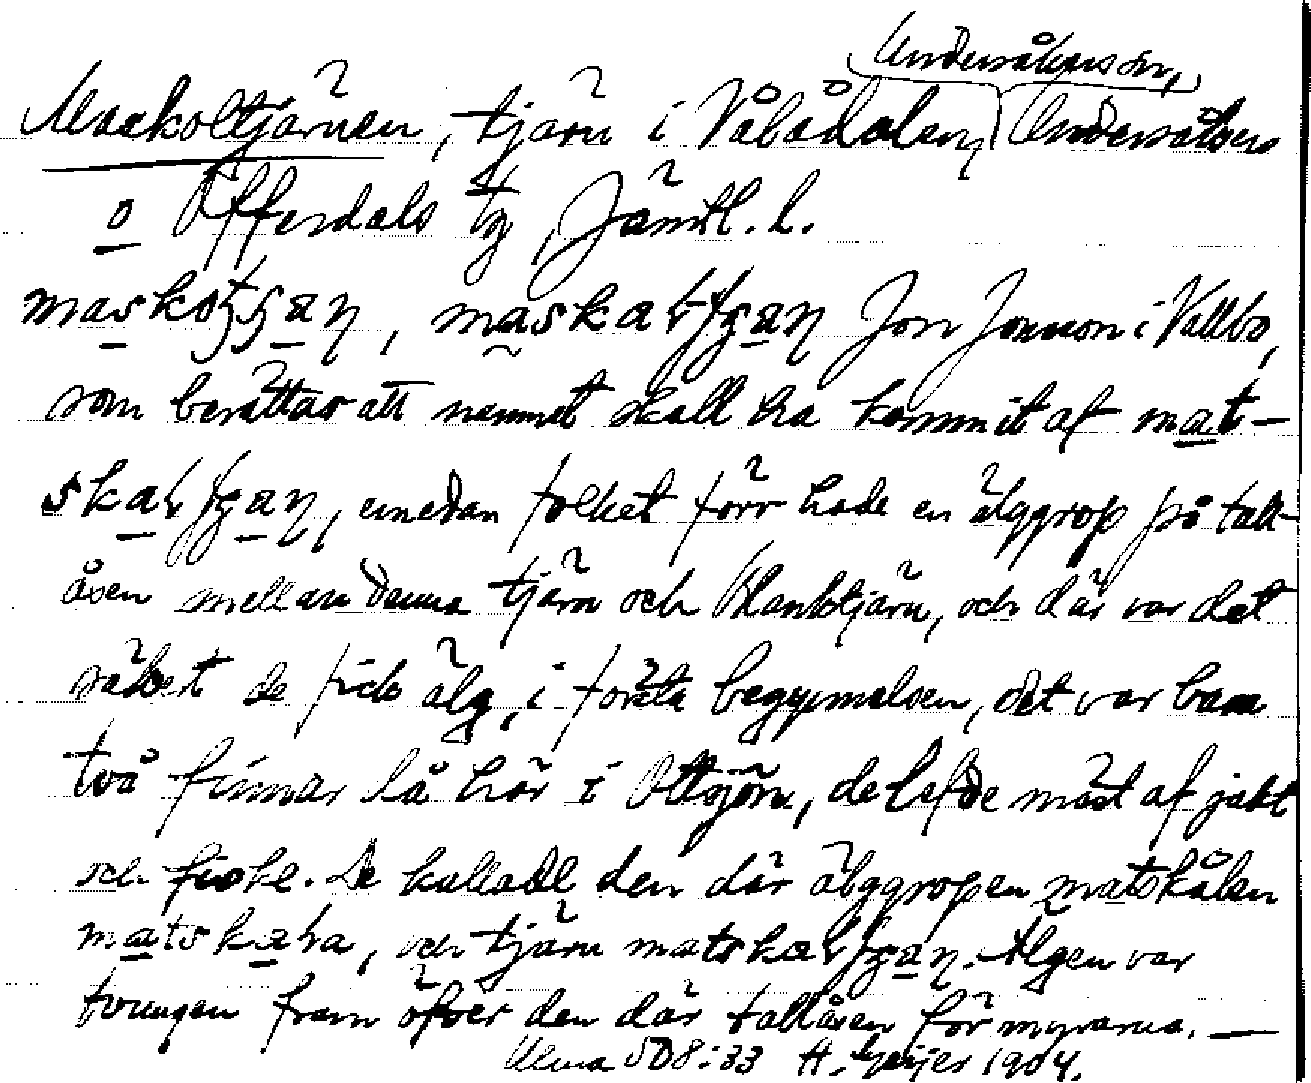 Undersåkers sn,
Maskoltjärnen, tjärn i Vålådalen, Undersåkers
o Offerdals tg, Jämtl. l.
Jon Jonsson i Vallbo,
som berättar att namnet skall ha kommit af mat-
emedan folket förr hade en älggrop på tall-
åsen mellan denna tjärn och Blanktjärn, och där var det
säkert de fick älg, i första begynnelsen, det var bara
två finnar då här i Ottsjön, de lefde mäst af jakt
och fiske. De kallade den där älggropen matskålen
och tjärn Älgen var
tvungen fram öfver den där tallåsen för myrarna. —
Ulma 508:33 H. Geijer 1904.